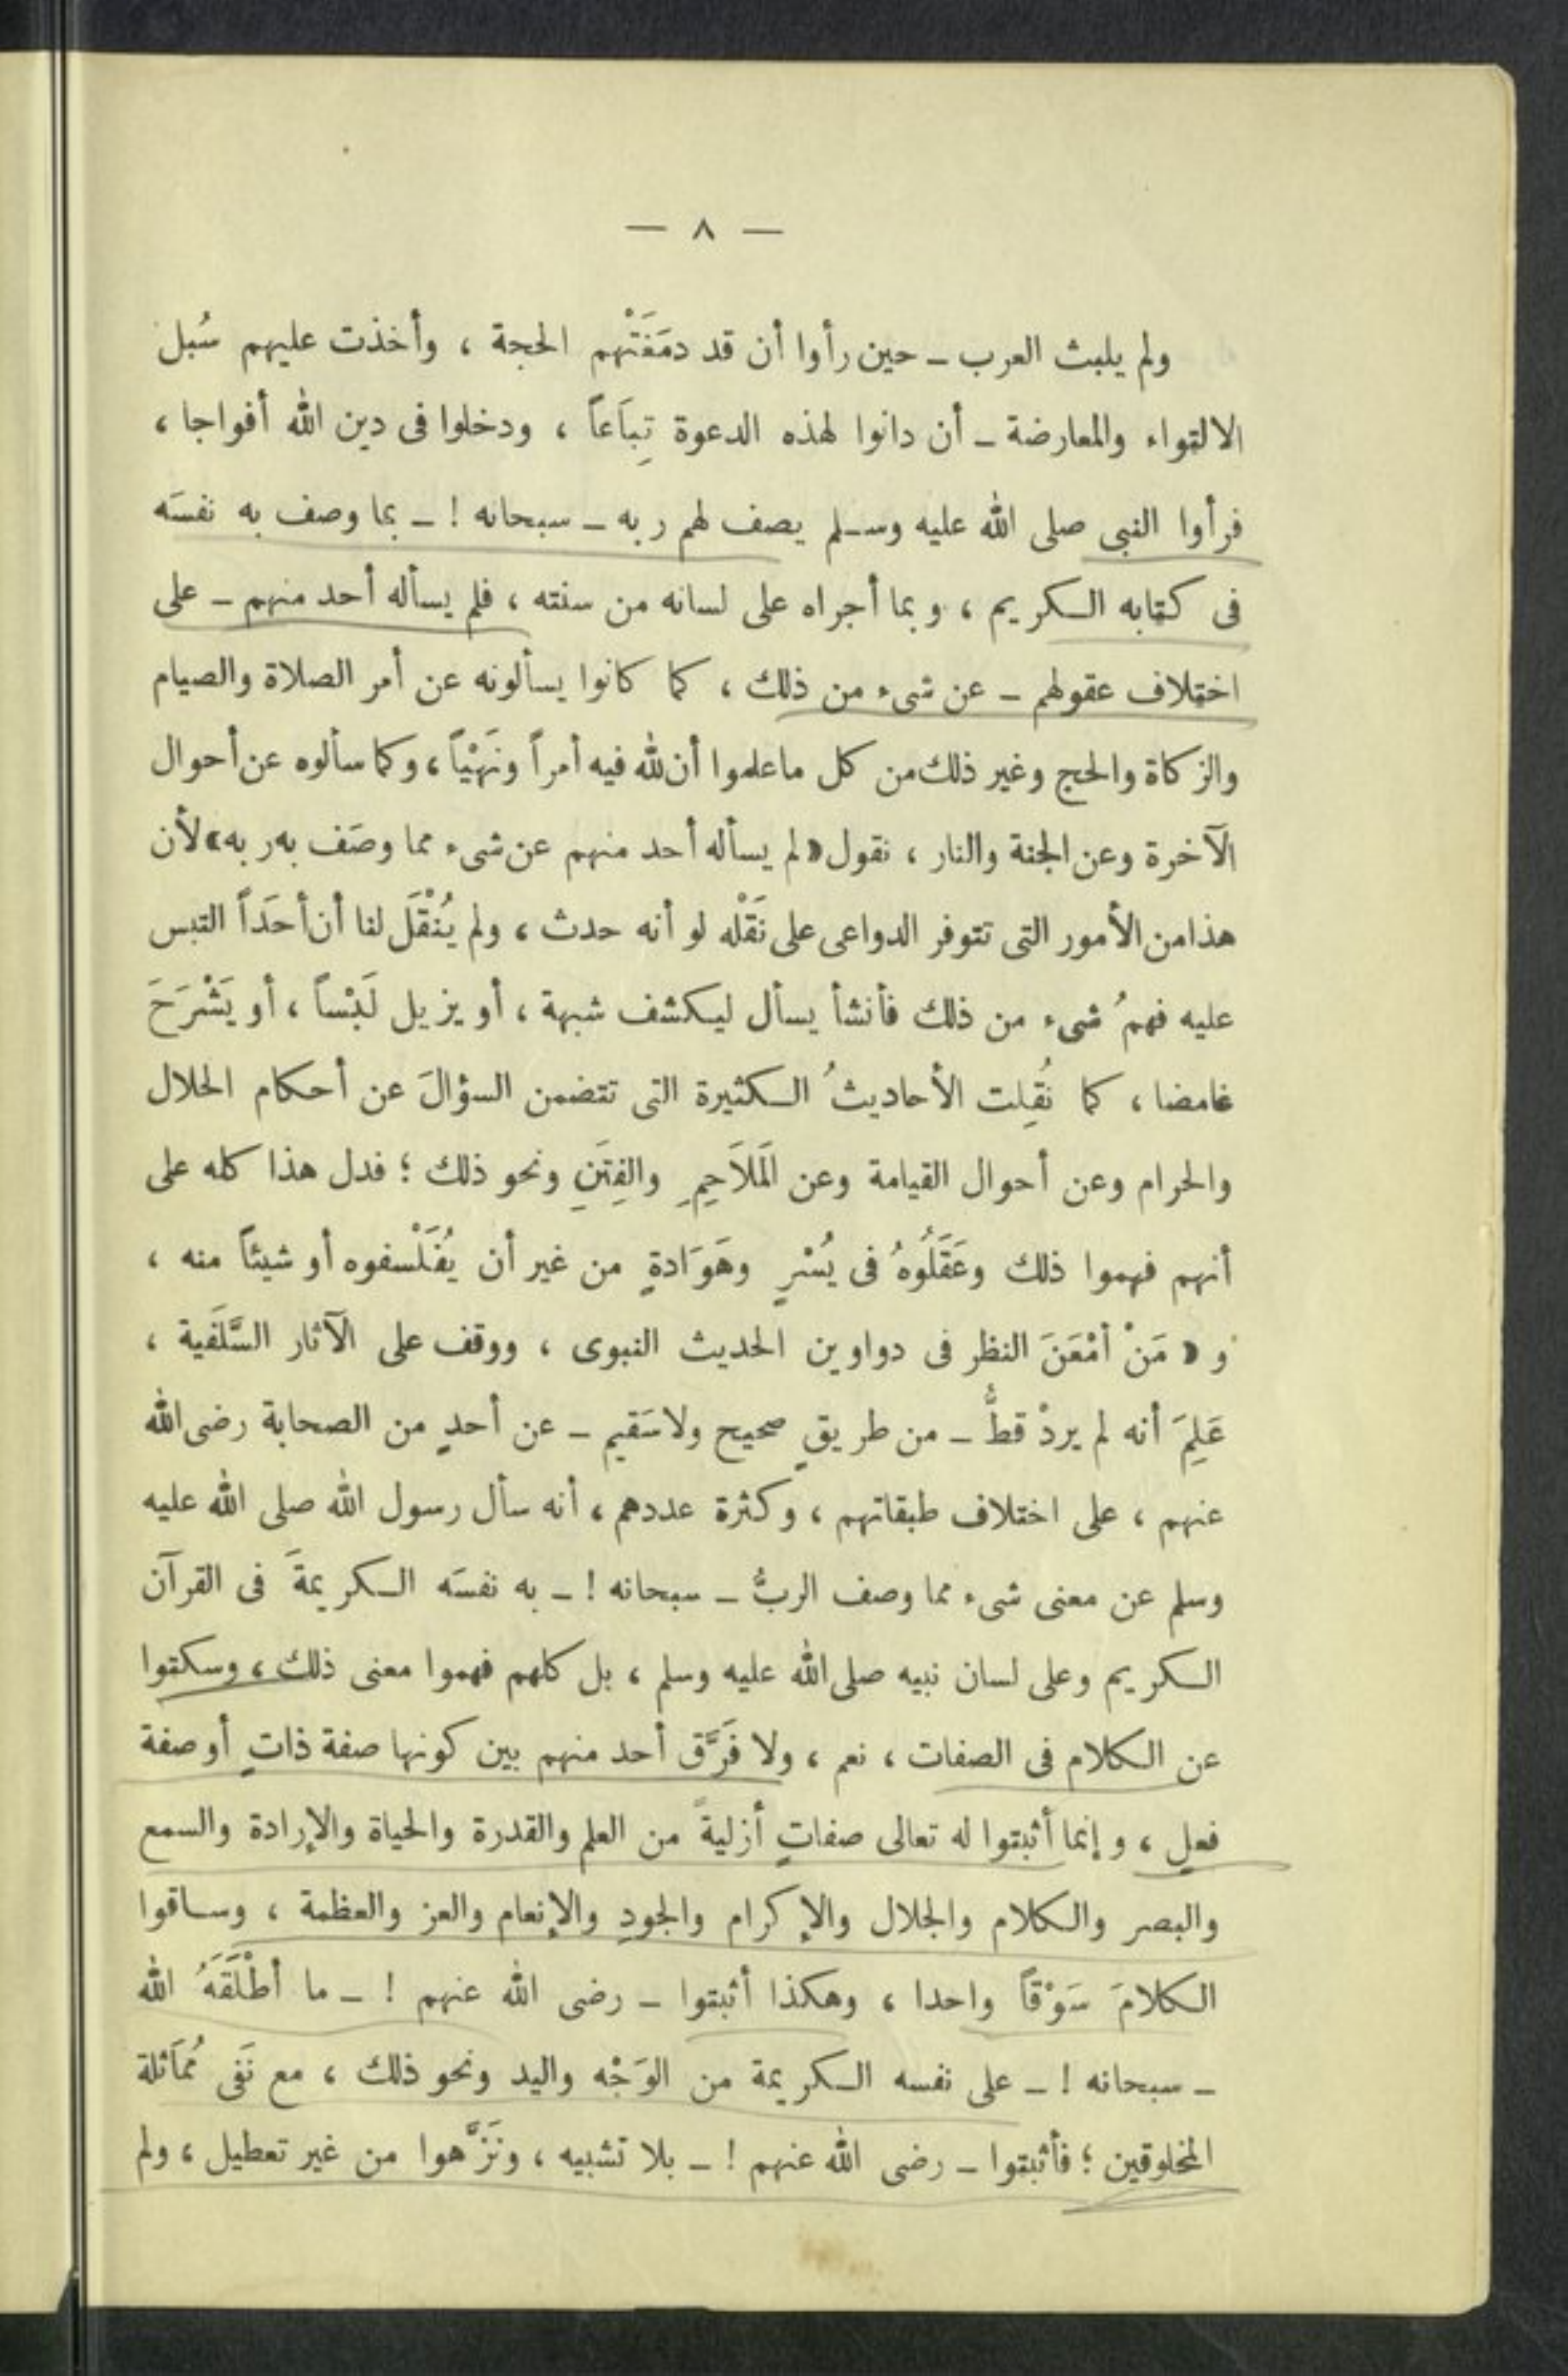 — ٨ —
ولم يلبث العرب – حين رأوا أن قد دمَغَتْهم الحجة ، وأخذت عليهم سُبل
الالتواء والمعارضة – أن دانوا لهذه الدعوة تِبَاعاً ، ودخلوا فى دين الله أفواجا ،
فرأوا النبى صلى الله عليه وسلم يصف لهم ربه – سبحانه ! – بما وصف به نفسَه
فى كتابه الكريم ، وبما أجراه على لسانه من سنته ، فلم يسأله أحد منهم – على
اختلاف عقولهم – عن شىء من ذلك ، كما كانوا يسألونه عن أمر الصلاة والصيام
والزكاة والحج وغير ذلك من كل ما علموا أن لله فيه أمراً ونَهْيًا ، وكما سألوه عن أحوال
الآخرة وعن الجنة والنار ، نقول « لم يسأله أحد منهم عن شىء مما وصَف به ربه » لأن
هذا من الأمور التى تتوفر الدواعى على نَقْله لو أنه حدث ، ولم يُنْقَل لنا أن أحَداً التبس
عليه فهمُ شىء من ذلك فأنشأ يسأل ليكشف شبهة ، أو يزيل لَبْساً ، أو يَشْرَحَ
غامضا ، كما نُقِلت الأحاديثُ الكثيرة التى تتضمن السؤالَ عن أحكام الحلال
والحرام وعن أحوال القيامة وعن المَلاَحِمِ والفِتَنِ ونحو ذلك ؛ فدل هذا كله على
أنهم فهموا ذلك وعَقَلُوهُ فى يُسْرٍ وهَوَادةٍ من غير أن يُفَلْسفوه أو شيئاً منه ،
و « مَنْ أمْعَنَ النظر فى دواوين الحديث النبوى ، ووقف على الآثار السَّلَفية ،
عَلِمَ أنه لم يردْ قطُّ – من طريقٍ صحيح ولا سَقيمٍ – عن أحدٍ من الصحابة رضى الله
عنهم ، على اختلاف طبقاتهم ، وكثرة عددهم ، أنه سأل رسول الله صلى الله عليه
وسلم عن معنى شىء مما وصف الربُّ – سبحانه ! – به نفسَه الكريمةَ فى القرآن
الكريم وعلى لسان نبيه صلى الله عليه وسلم ، بل كلهم فهموا معنى ذلك ، وسكتوا
عن الكلام فى الصفات ، نعم ، ولا فَرَّق أحد منهم بين كونها صفة ذاتٍ أو صفة
فعلٍ ، وإنما أثبتوا له تعالى صفاتٍ أزليةً من العلم والقدرة والحياة والإرادة والسمع
والبصر والكلام والجلال والإكرام والجودِ والإنعام والعز والعظمة ، وساقوا
الكلامَ سَوْقاً واحدا ، وهكذا أثبتوا – رضى الله عنهم ! – ما أطْلَقَهُ الله
– سبحانه ! – على نفسه الكريمة من الوَجْه واليد ونحو ذلك ، مع نَفى مُمَاثلة
المخلوقين ؛ فأثبتوا – رضى الله عنهم ! – بلا تشبيه ، ونَزَّهوا من غير تعطيل ، ولم